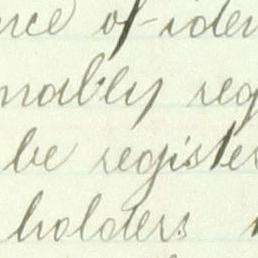 nce of iden
nably reg
be register
holders